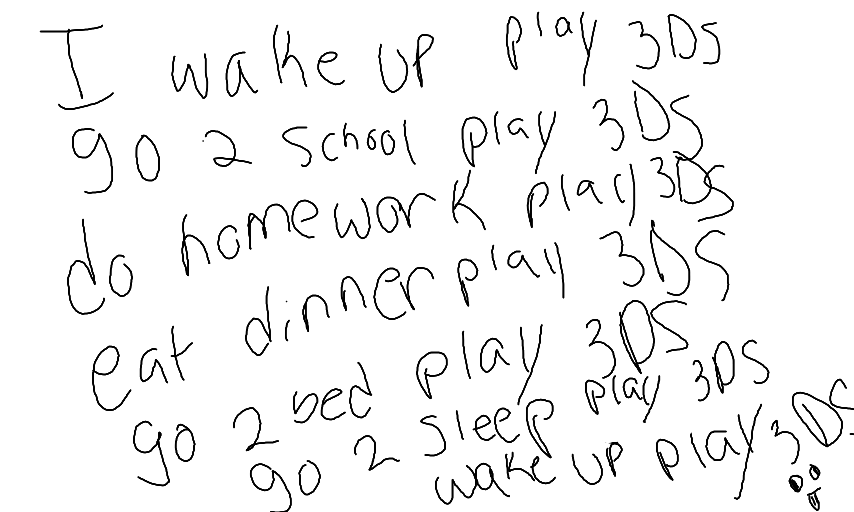 I wake up play 3DS
go 2 school play 3DS
do homework play 3DS
eat dinner play 3DS
go 2 bed play 3DS
go 2 sleep play 3DS
wake up play 3DS